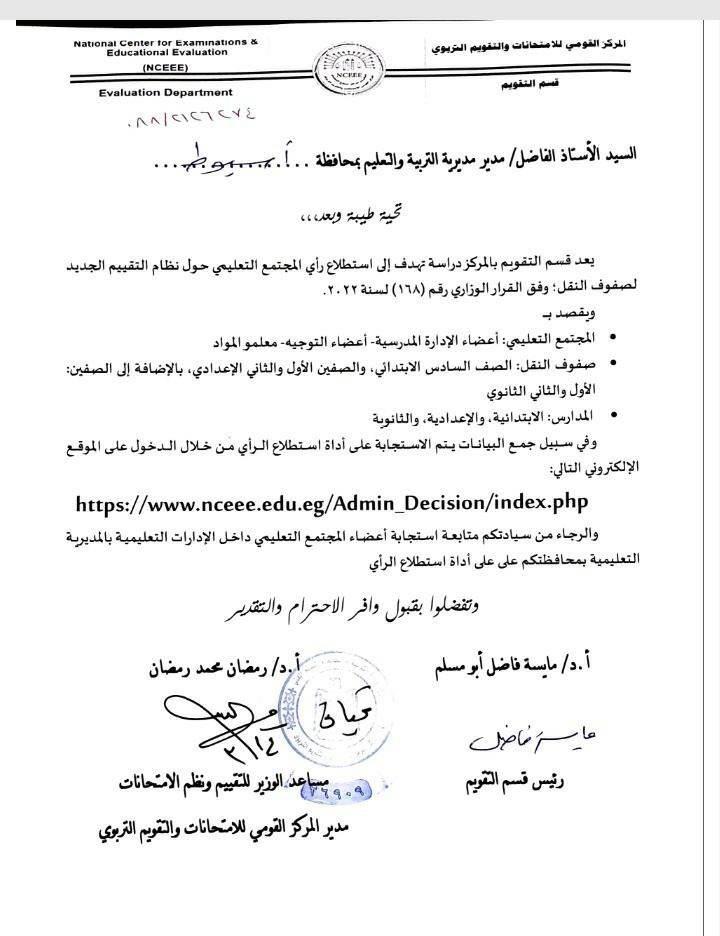 National Center for Examinations & Educational Evaluation
(NCEEE)
Evaluation Department
المركز القومي للامتحانات والتقويم التربوي
قسم التقويم
NCEEE
السيد الأستاذ الفاضل/ مدير مديرية التربية والتعليم بمحافظة ...أسيوط....
تحية طيبة وبعد،،،
يعد قسم التقويم بالمركز دراسة تهدف إلى استطلاع رأي المجتمع التعليمي حول نظام التقييم الجديد
لصفوف النقل؛ وفق القرار الوزاري رقم (١٦٨) لسنة ٢٠٢٢.
ويقصد بـ
• المجتمع التعليمي: أعضاء الإدارة المدرسية- أعضاء التوجيه- معلمو المواد
• صفوف النقل: الصف السادس الابتدائي، والصفين الأول والثاني الإعدادي، بالإضافة إلى الصفين:
الأول والثاني الثانوي
• المدارس: الابتدائية، والإعدادية، والثانوية
وفي سبيل جمع البيانات يتم الاستجابة على أداة استطلاع الرأي من خلال الدخول على الموقع
الإلكتروني التالي:
https://www.nceee.edu.eg/Admin_Decision/index.php
والرجاء من سيادتكم متابعة استجابة أعضاء المجتمع التعليمي داخل الإدارات التعليمية بالمديرية
التعليمية بمحافظتكم على على أداة استطلاع الرأي
وتفضلوا بقبول وافر الاحترام والتقدير
أ.د/ مايسة فاضل أبو مسلم
أ.د/ رمضان محمد رمضان
مايسة فاضل
٢/١٤
رئيس قسم التقويم
مساعد الوزير للتقييم ونظم الامتحانات
٣٦٩٠٩
مدير المركز القومي للامتحانات والتقويم التربوي